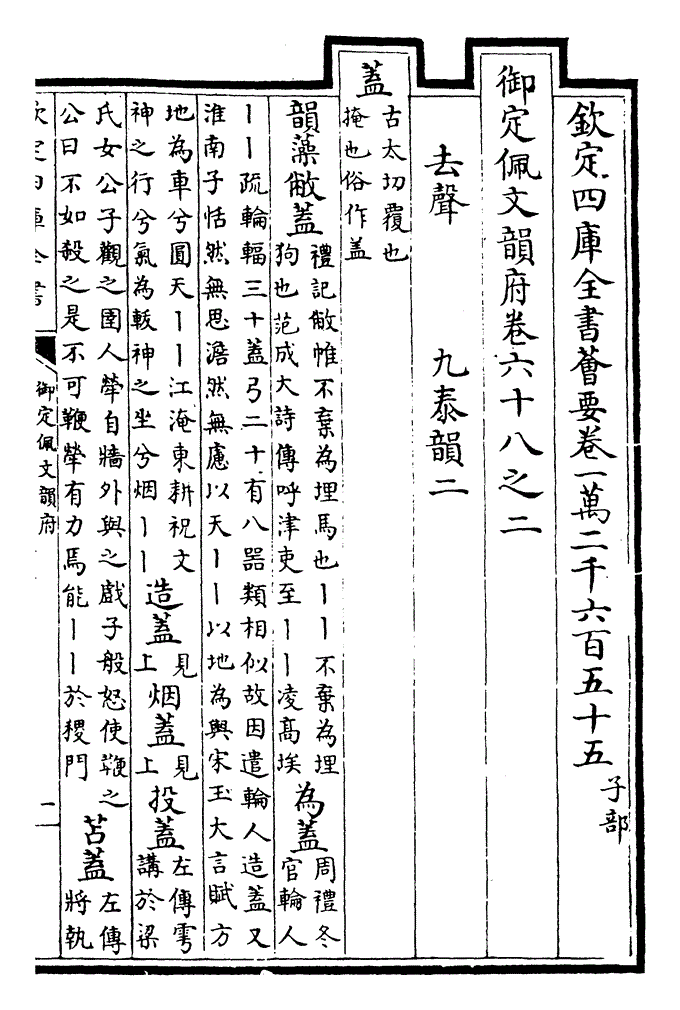 欽定四庫全書薈要卷一萬二千六百五十五 子部
御定佩文韻府卷六十八之二
去聲 九泰韻二
蓋 古太切覆也
掩也俗作盖
韻藻敝蓋 禮記敝帷不棄為埋馬也丨丨不棄為埋
狗也范成大詩傳呼津吏至丨丨凌高埃 為蓋 周禮冬
官輪人
丨丨疏輪輻三十蓋弓二十有八器類相似故因遣輪人造蓋又
淮南子恬然無思澹然無慮以天丨丨以地為輿宋玉大言賦方
地為車兮圓天丨丨江淹東耕祝文
神之行兮氣為軷神之坐兮烟丨丨 造蓋 見
上 烟蓋 見
上 投蓋 左傳雩
講於梁
氏女公子觀之圉人犖自牆外與之戲子般怒使鞭之
公曰不如殺之是不可鞭犖有力焉能丨丨於稷門 苫蓋 左傳
將執
欽定四庫全書
御定佩文韻府
二